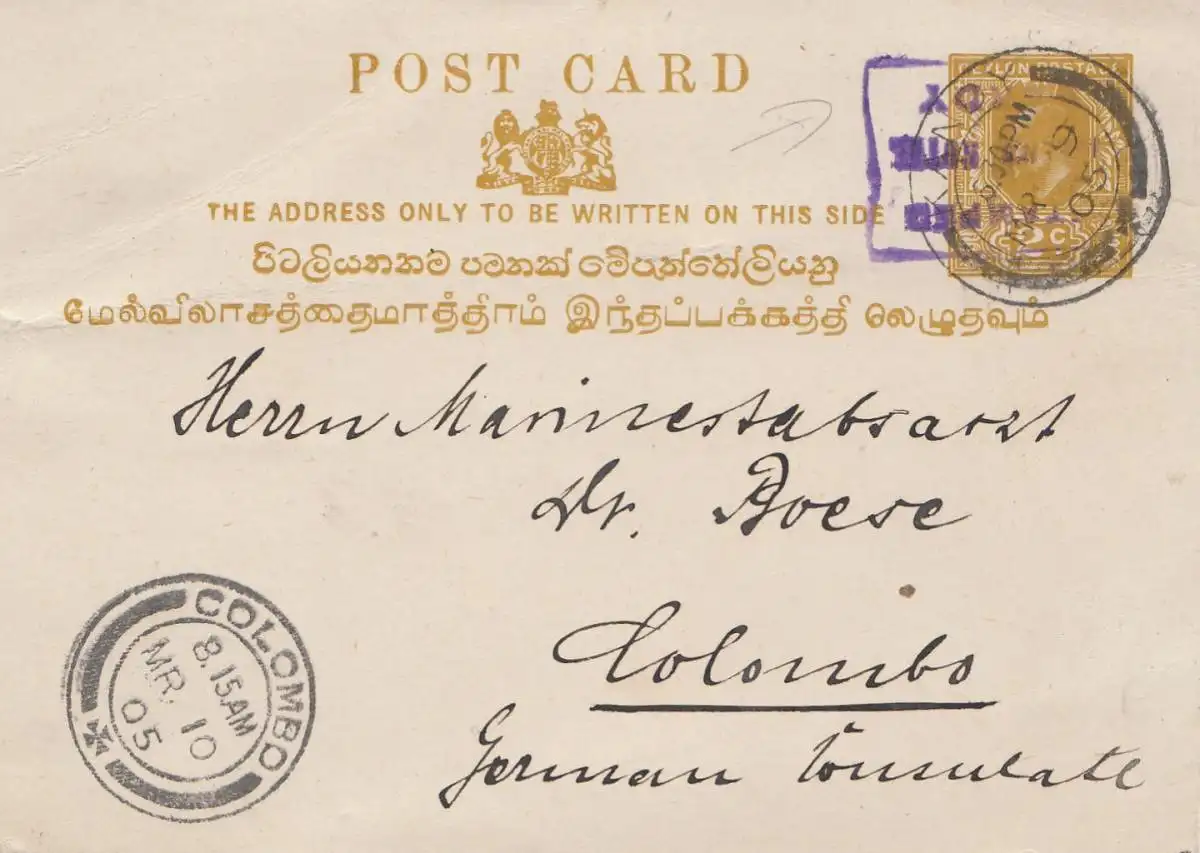 POST CARD
CEYLON POSTAGE
THE ADDRESS ONLY TO BE WRITTEN ON THIS SIDE
2 C
පිටලියනතම පමනක් මේපැත්තේලියනු
மேல்விலாசத்தைமாத்திரம் இந்தப்பக்கத்தி லெழுதவும்
Herrn Marinestabsarzt
Dr. Boese
Colombo
German Consulate
COLOMBO
8.15 AM
MR 10
05